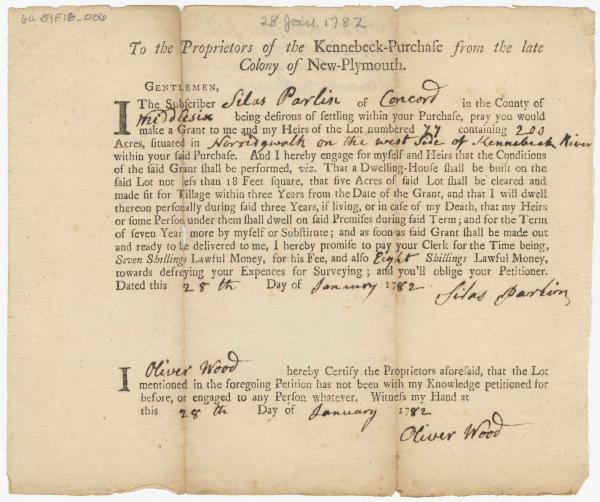 28 Jan. 1782
To the Proprietors of the Kennebeck-Purchaſe from the late
Colony of New-Plymouth.
GENTLEMEN,
I The Subſcriber Silas Parlin of Concord in the County of
Middlesix being deſirous of ſettling within your Purchaſe, pray you would
make a Grant to me and my Heirs of the Lot numbered 77 containing 200
Acres, ſituated in Norridgwalk on the west Side of Kennebeck River
within your ſaid Purchaſe. And I hereby engage for myſelf and Heirs that the Conditions
of the ſaid Grant ſhall be performed, viz. That a Dwelling-Houſe ſhall be built on the
ſaid Lot not leſs than 18 Feet ſquare, that five Acres of ſaid Lot ſhall be cleared and
made fit for Tillage within three Years from the Date of the Grant, and that I will dwell
thereon perſonally during ſaid three Years, if living, or in caſe of my Death, that my Heirs
or ſome Perſon under them ſhall dwell on ſaid Premiſes during ſaid Term; and for the Term
of ſeven Year more by myſelf or Subſtitute; and as ſoon as ſaid Grant ſhall be made out
and ready to be delivered to me, I hereby promiſe to pay your Clerk for the Time being,
Seven Shillings Lawful Money, for his Fee, and alſo Eight Shillings Lawful Money,
towards defreying your Expences for Surveying; and you'll oblige your Petitioner.
Dated this 28th Day of January 1782. Silas Parlin
I Oliver Wood hereby Certify the Proprietors aforeſaid, that the Lot
mentioned in the foregoing Petition has not been with my Knowledge petitioned for
before, or engaged to any Perſon whatever. Witneſs my Hand at
this 28th Day of January 1782
Oliver Wood